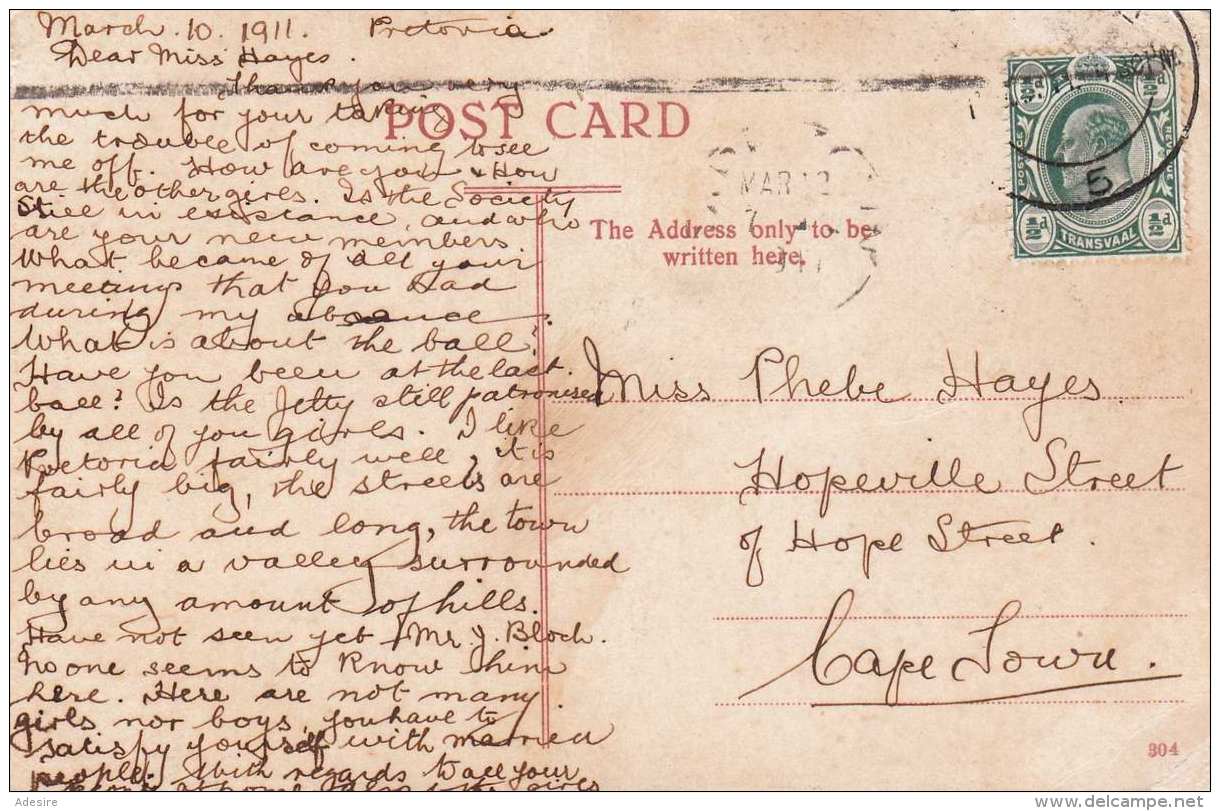 March. 10. 1911. Pretoria.
Dear Miss Hayes.
Thank you very
much for your taking
the trouble of coming to see
me off. How are you & How
are the other girls. Is the Society
still in existance and who
are your new members.
What became of all your
meetings that you had
during my absence.
What is about the ball?
Have you been at the last
ball? Is the Jetty still patronised
by all of you girls. I like
Pretoria fairly well, it is
fairly big, the streets are
broad and long, the town
lies in a valley surrounded
by any amount of hills.
Have not seen yet Mr. J. Bloch.
No one seems to know him
here. Here are not many
girls nor boys, you have to
satisfy yourself with married
people. With regards to all your
at home & girls
POST CARD
The Address only to be
written here.
MAR 12
5
POSTAGE
REVENUE
½d
½d
½d
½d
TRANSVAAL
Miss Phebe Hayes.
Hopeville Street
of Hope Street.
Cape Town.
304
© Adesire
delcampe.net